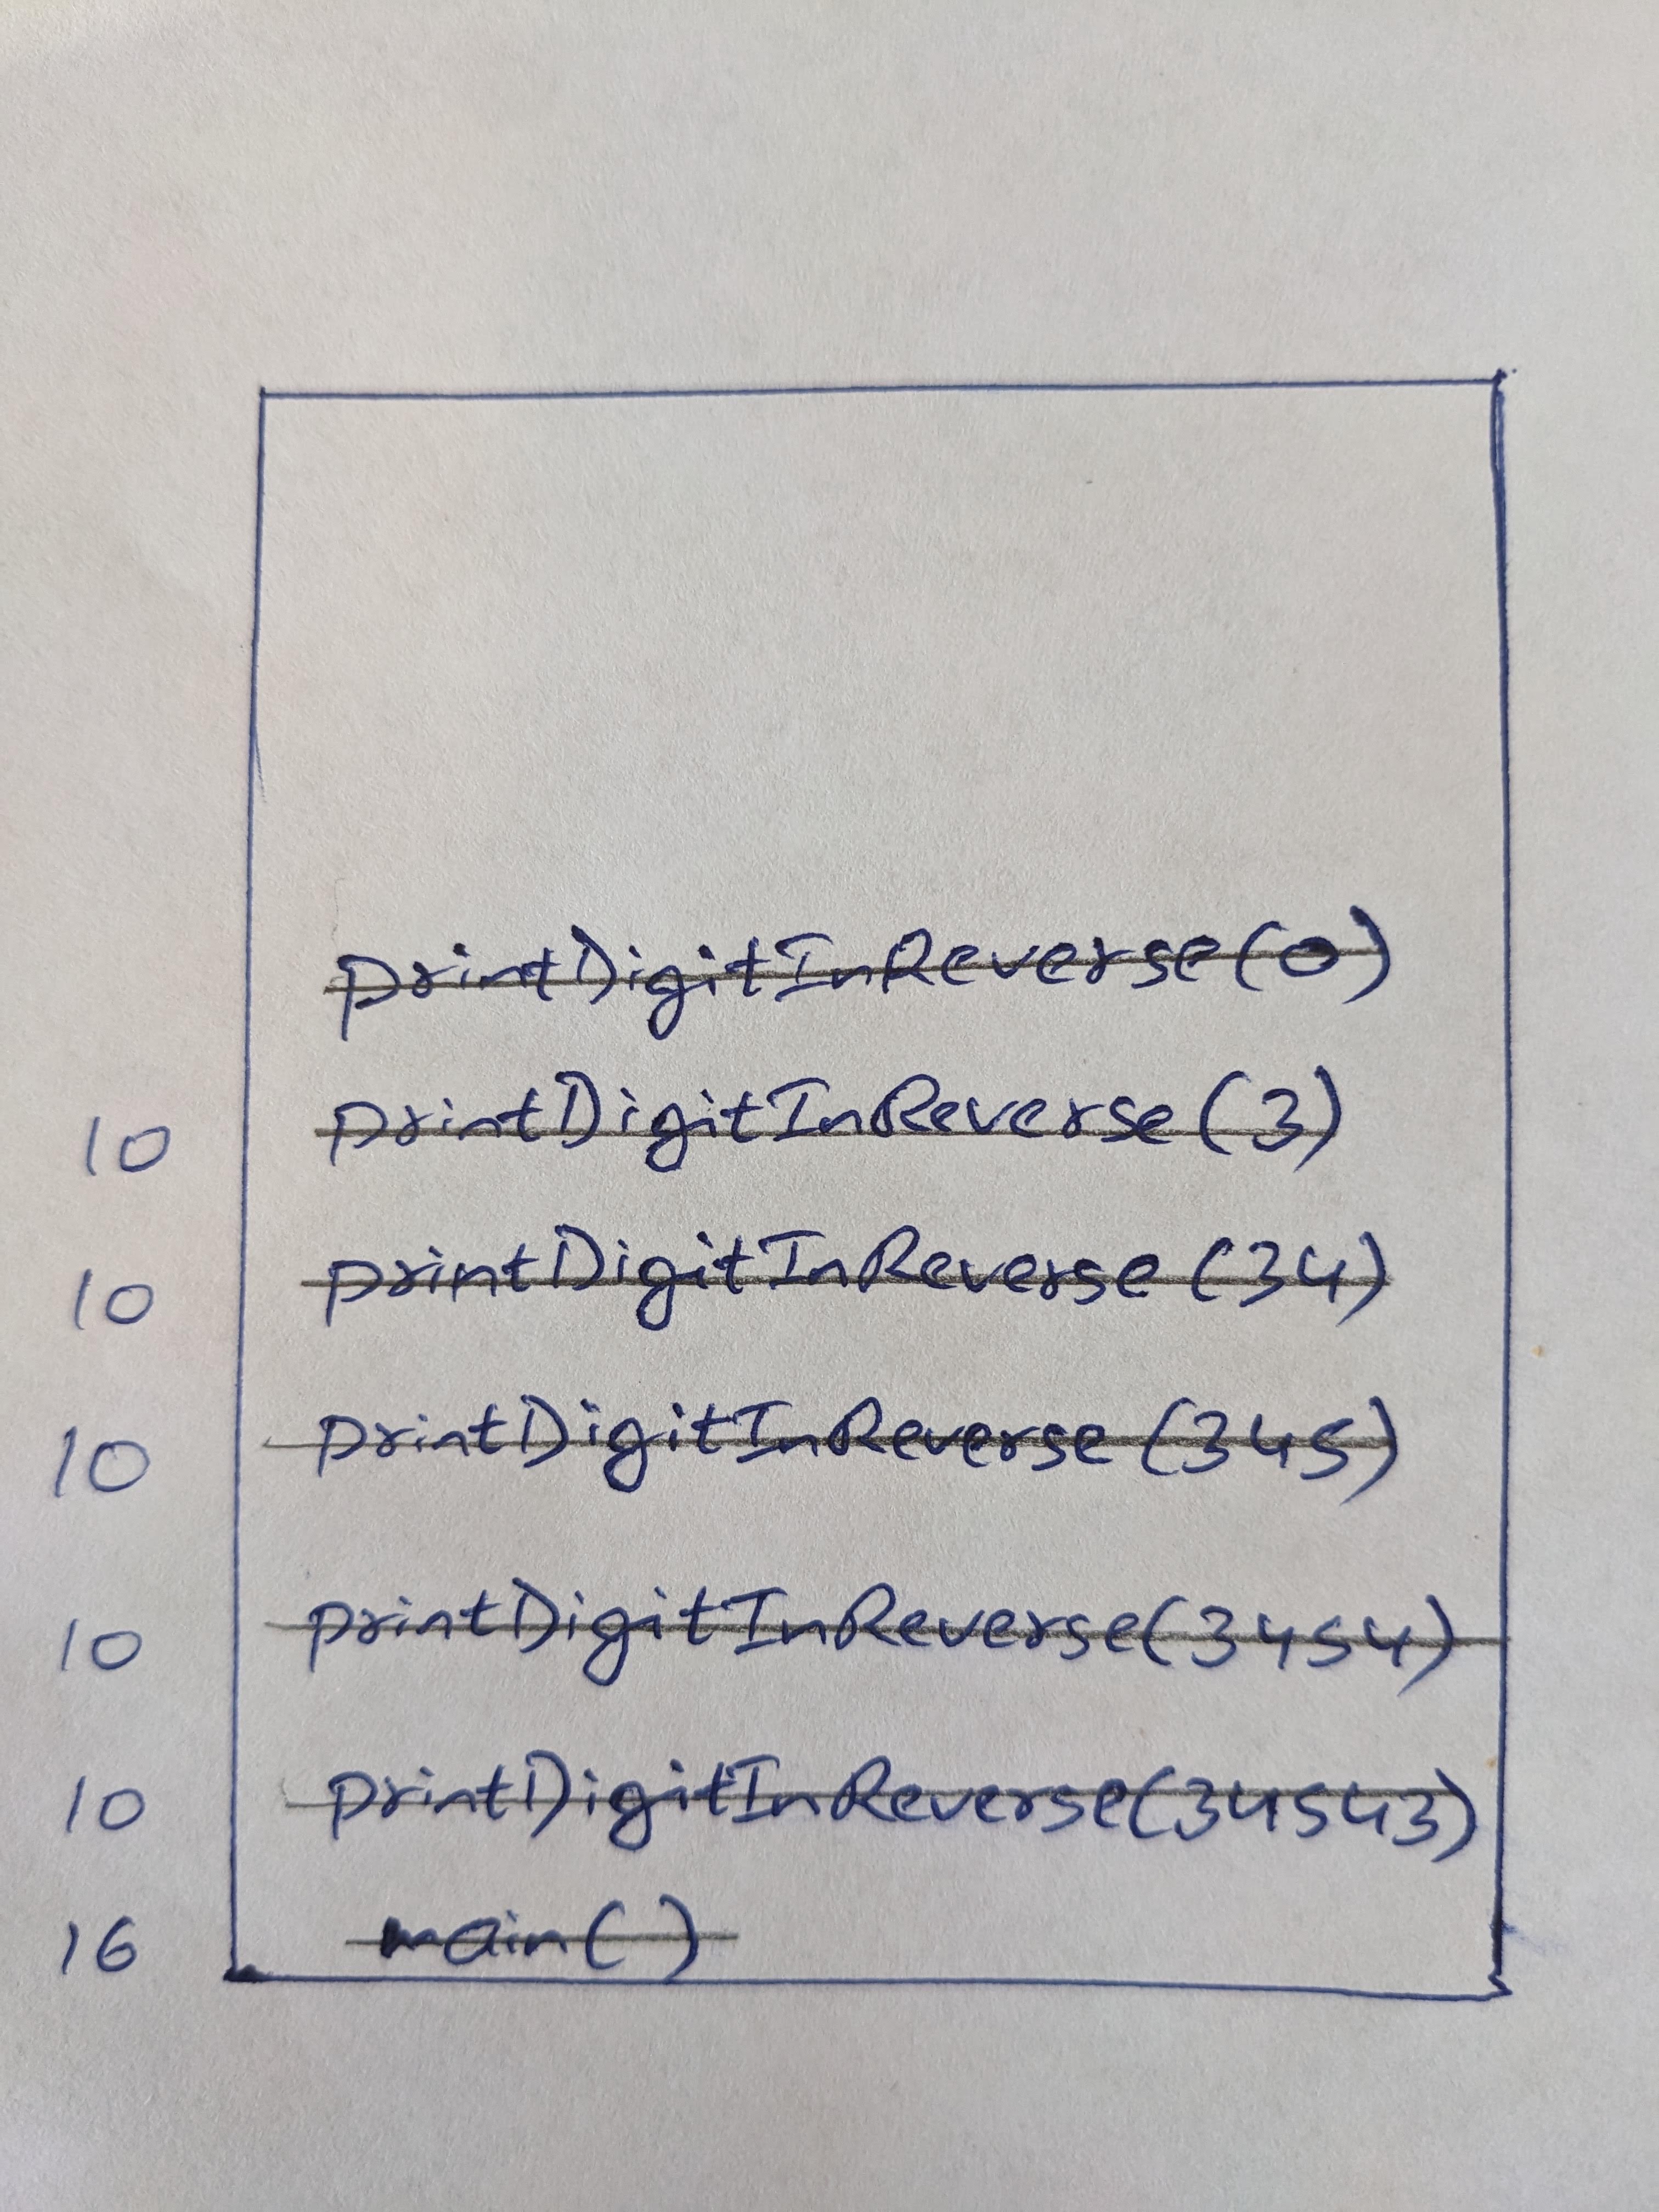 printDigitInReverse(0)
10 printDigitInReverse(3)
10 printDigitInReverse(34)
10 printDigitInReverse(345)
10 printDigitInReverse(3454)
10 printDigitInReverse(34543)
16 main()